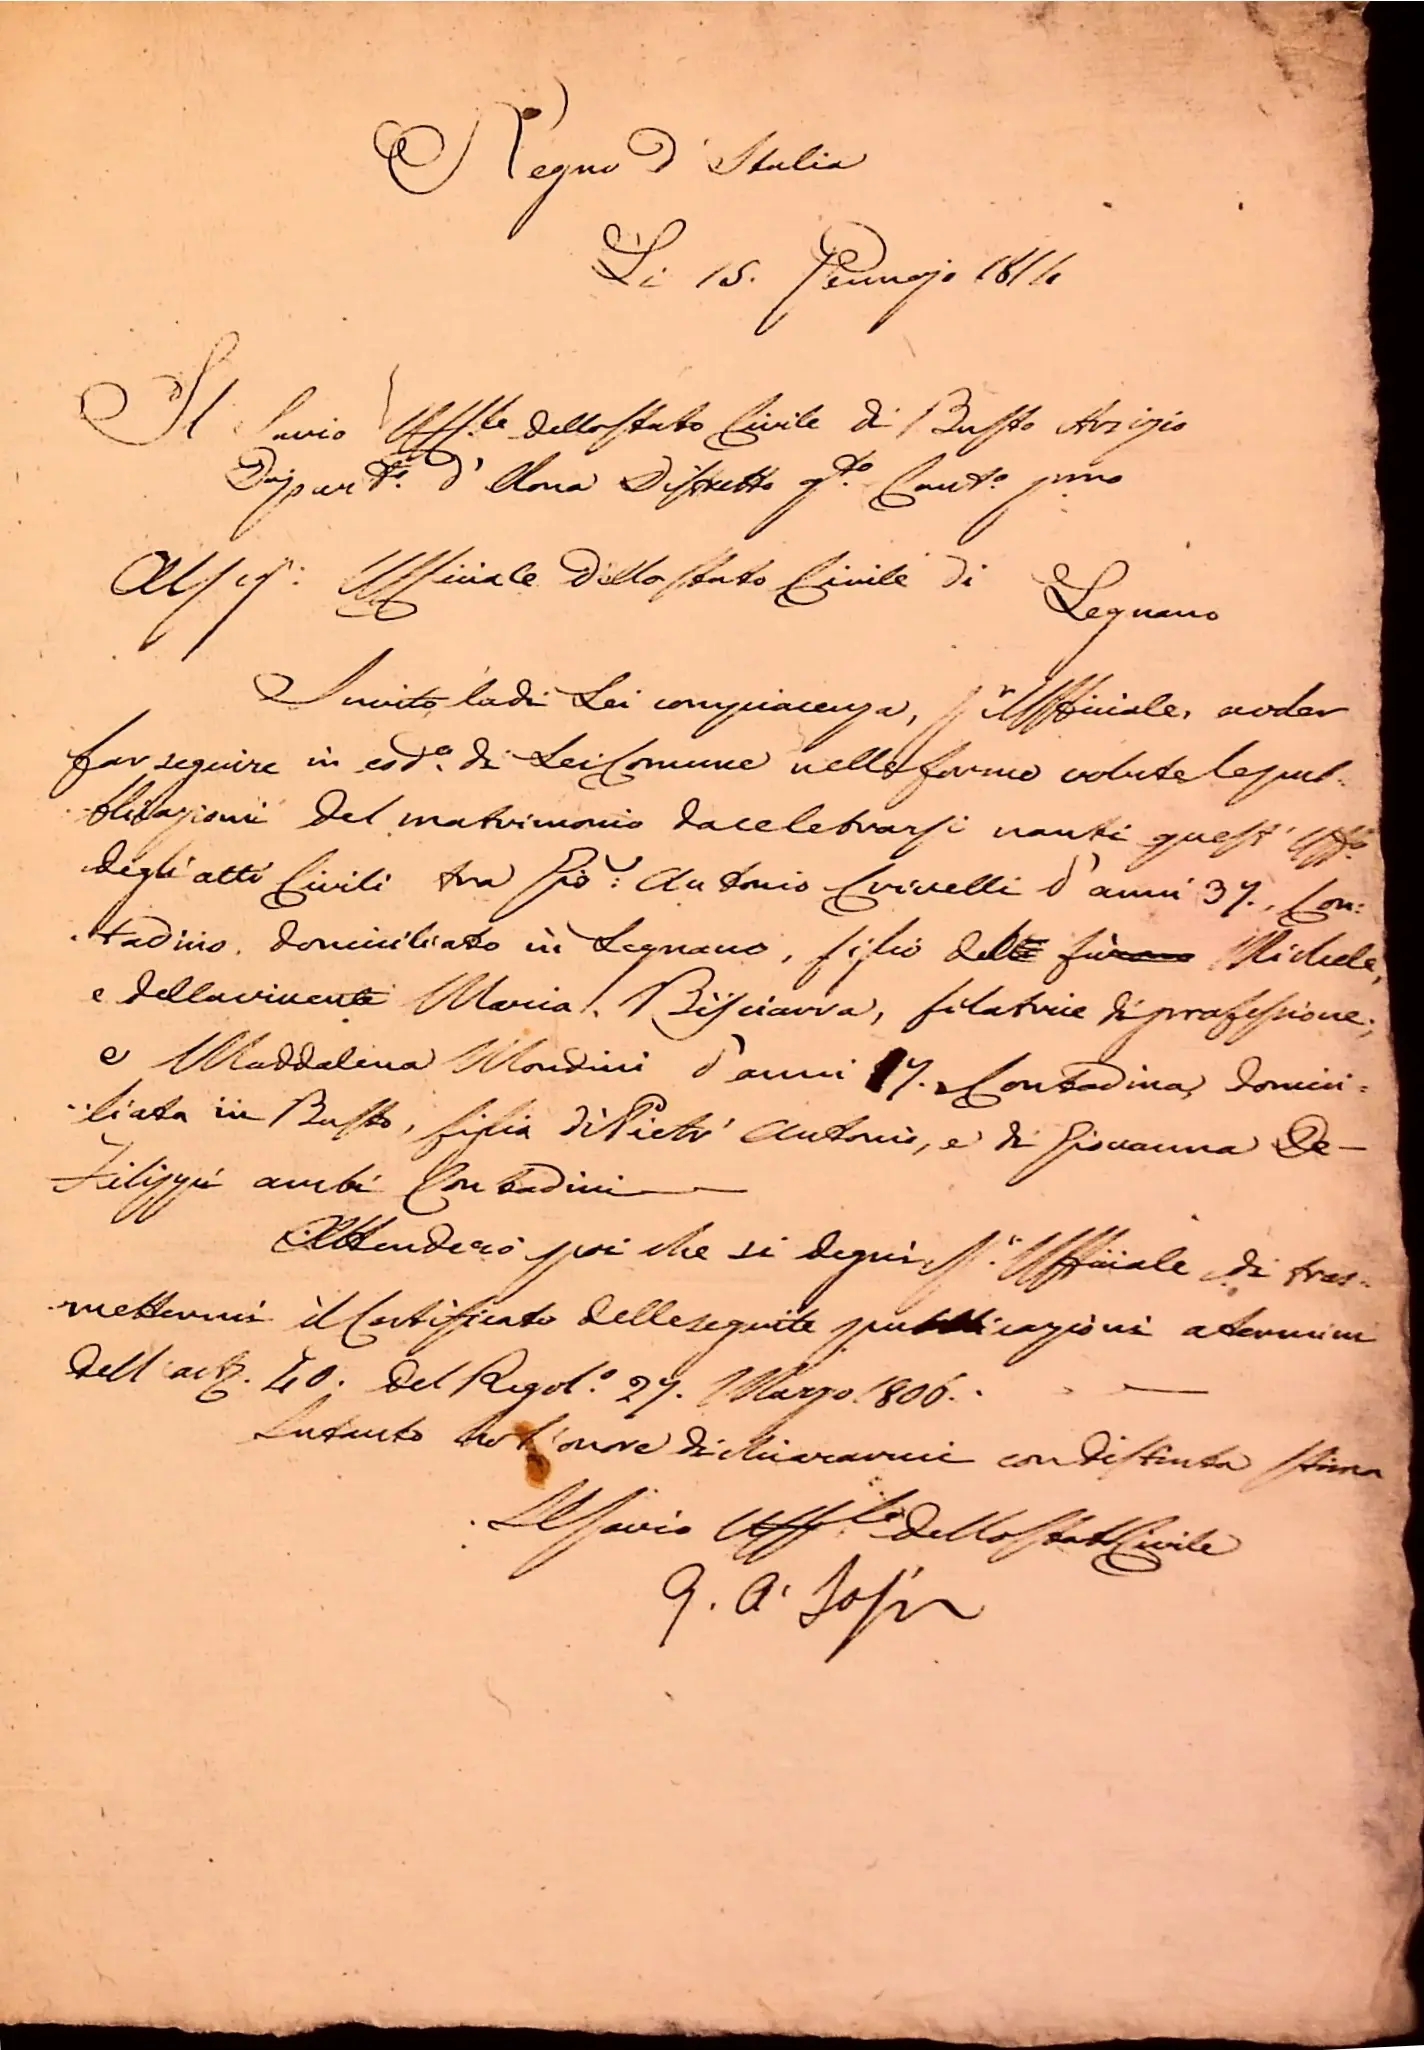 Regno d'Italia
Li 15. Gennajo 1814
Il Savio Uff.le dello stato Civile di Busto Arsizio
Dipart.to d'Olona Distretto q.to Cant.o p.mo
Al Sig.r Ufficiale dello stato Civile di Legnano
Invito la di Lei compiacenza, S.r Ufficiale, a voler
far seguire in cod.a di Lei Comune nelle forme volute le pub-
blicazioni del matrimonio da celebrarsi nanti quest' Uff.o
degli atti Civili tra Gio: Antonio Crivelli d'anni 37., Con:
tadino domiciliato in Legnano, figlio del fù Michele,
e della vivente Maria Bisciarra, filatrice di professione;
e Maddalena Mondini d'anni 17. Contadina, domici-
liata in Busto, figlia di Pietr' Antonio, e di Giovanna De-
Filippi ambi Contadini
Attenderò poi che si degni S.r Ufficiale di tras-
mettermi il Certificato delle seguite pubblicazioni a termini
dell'art. 40. del Regol.o 27. Marzo 1806.
Intanto ho l'onore di chiararmi con distinta stima
Il Savio Uff.le dello Stat Civile
G. A.